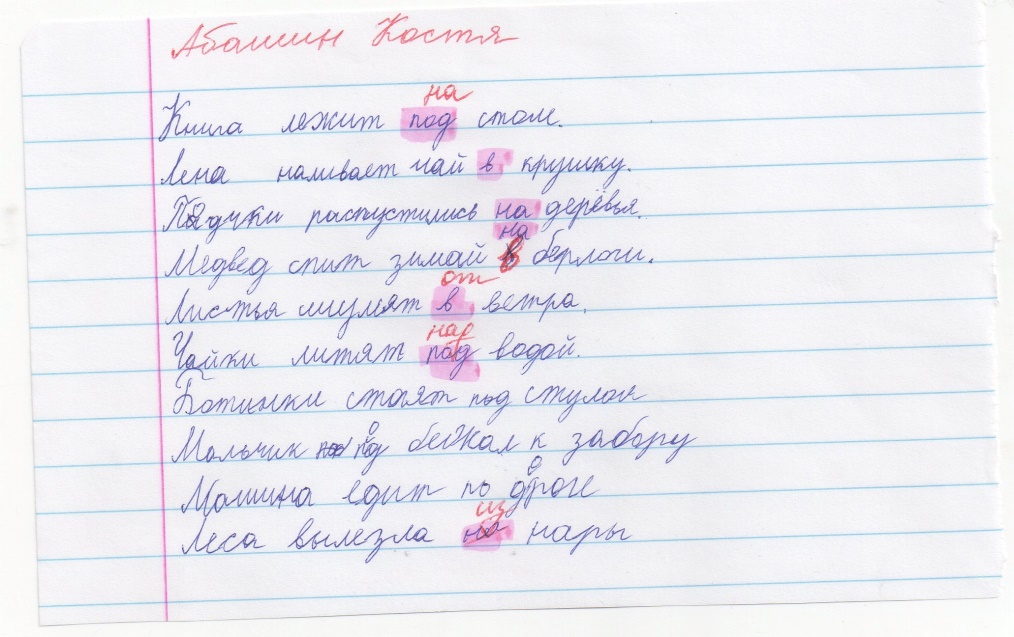 Абашин Костя
на
Книга лежит под стом.
Лена наливает чай в крушку.
Пчдчки распустились на деревья.
на
Медвед спит зимай в берлоги.
от
Листья шумят в ветра.
над
Чайки литят под водой.
Ботинки стоят под стулом
Мальчик под бежал к забору
Машина едит по дроге
из
Леса вылезла на нары